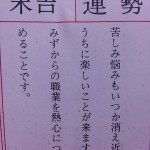 運勢
末吉
苦しみ悩みもいつか消え近
うちに楽しいことが来ます
みずからの職業を熱心につ
めることです。